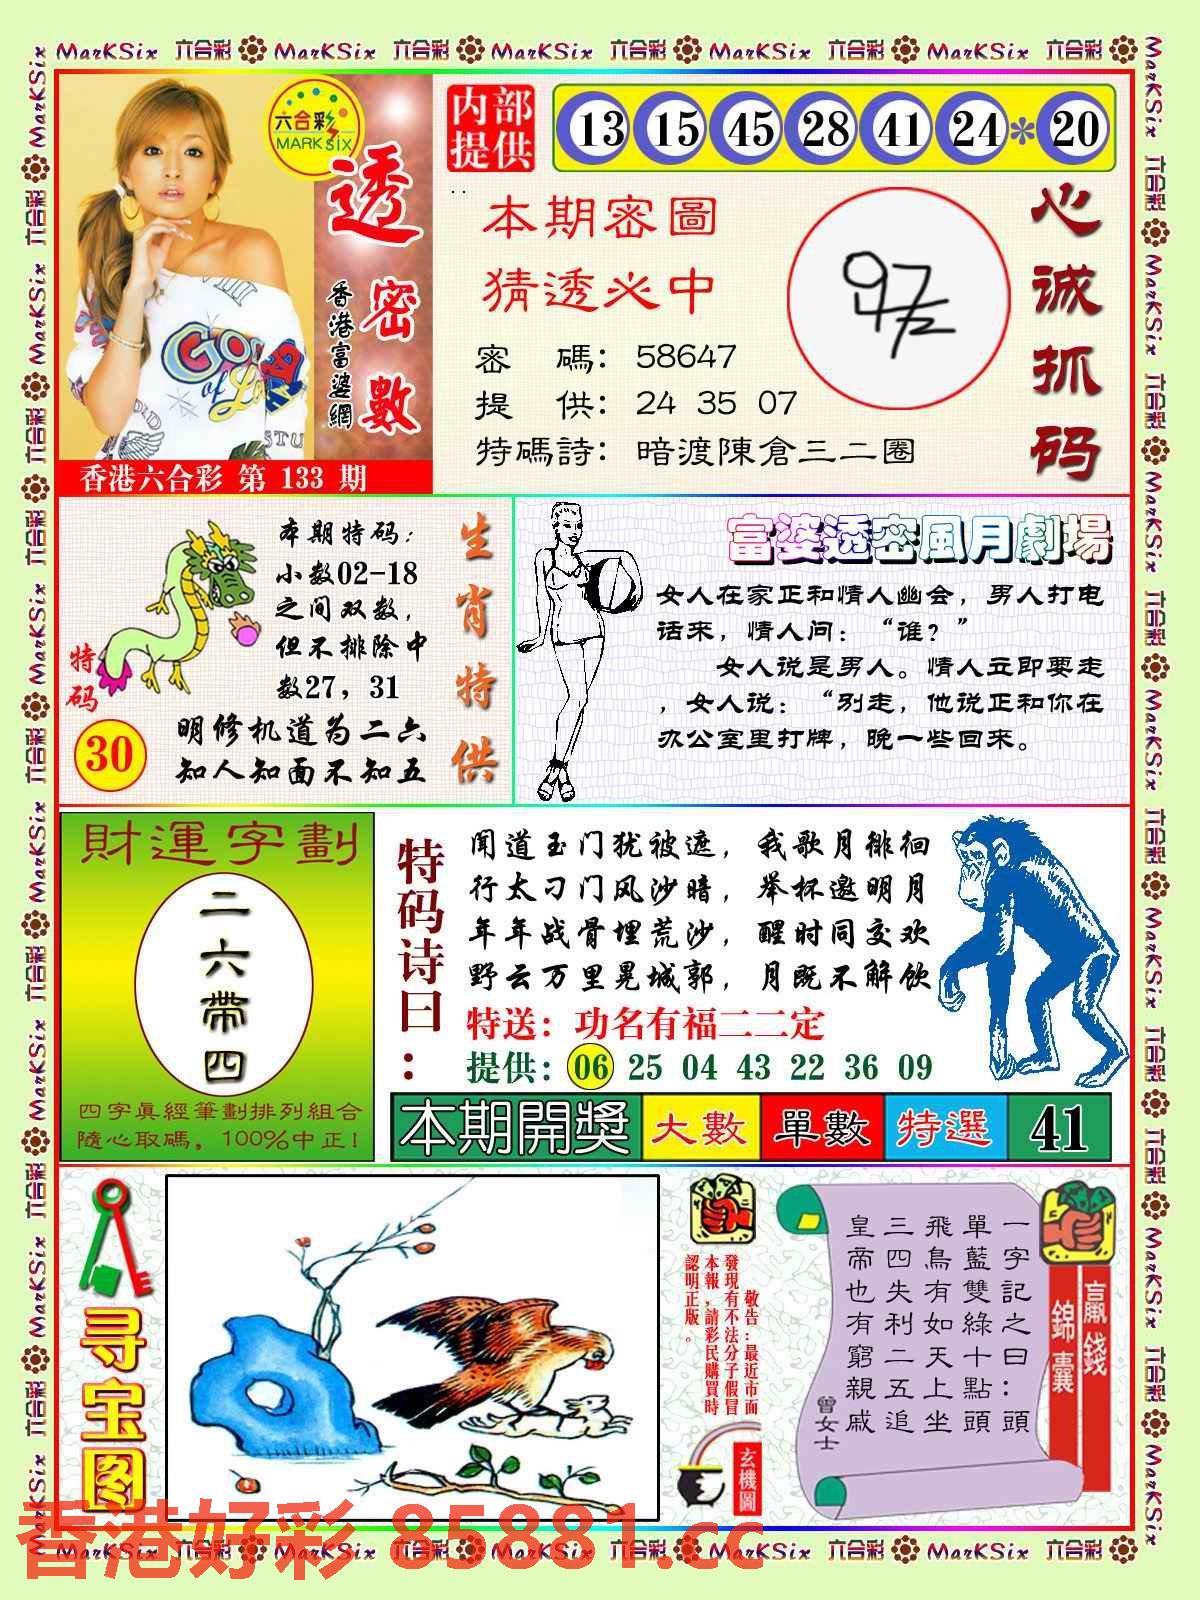 MarKSix 六合彩 MarKSix 六合彩 MarKSix 六合彩 MarKSix 六合彩 MarKSix 六合彩
六合彩
MARK SIX
透密數
香港富婆網
香港六合彩 第 133 期
内部
提供
13 15 45 28 41 24 * 20
本期密圖
猜透必中
密 碼： 58647
提 供： 24 35 07
特碼詩： 暗渡陳倉三二圈
心诚抓码
本期特码：
小数02-18
之间双数，
但不排除中
数27，31
特码
30
明修机道为二六
知人知面不知五
生肖特供
富婆透密風月劇場
女人在家正和情人幽会，男人打电
话来，情人问：“谁？”
女人说是男人。情人立即要走
，女人说：“别走，他说正和你在
办公室里打牌，晚一些回来。
財運字劃
二六帶四
四字真經筆劃排列組合
隨心取碼，100%中正！
特码诗曰：
闻道玉门犹被遮，我歌月徘徊
行太刁门风沙暗，举杯邀明月
年年战骨埋荒沙，醒时同交欢
野云万里晃城郭，月既不解饮
特送：功名有福二二定
提供：06 25 04 43 22 36 09
本期開獎 大數 單數 特選 41
寻宝图
敬告：最近市面
發現有不法分子假冒
本報，請彩民購買時
認明正版。
玄機圖
一字記之曰：頭
單藍雙綠十點頭
飛鳥有如天上坐
三四失利二五追
皇帝也有窮親戚
曾女士
贏錢
錦囊
香港好彩 85881.cc
MarKSix 六合彩 MarKSix 六合彩 MarKSix 六合彩 MarKSix 六合彩 MarKSix 六合彩